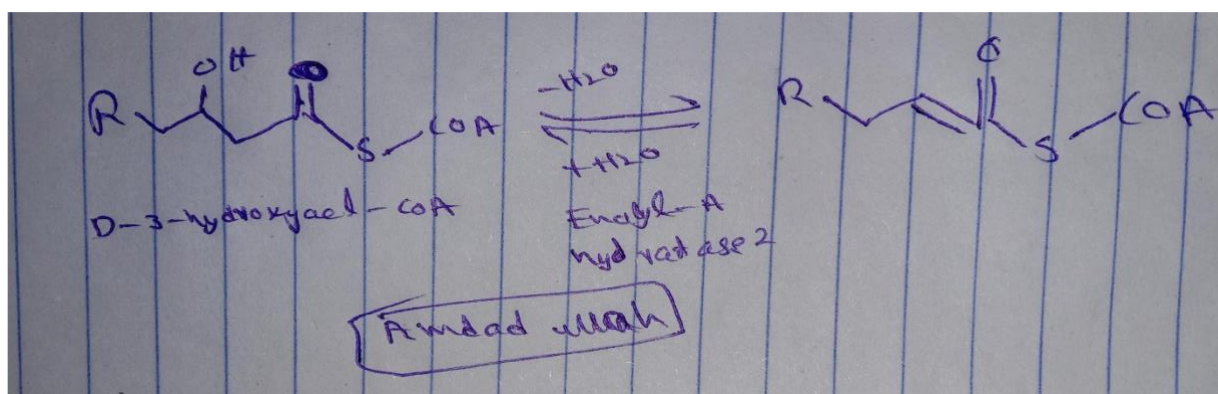 OH O
R S COA
-H2O
+H2O
R O S COA
D-3-hydroxyacl-COA
Enoyl-A
hydratase2
Amdad ullah